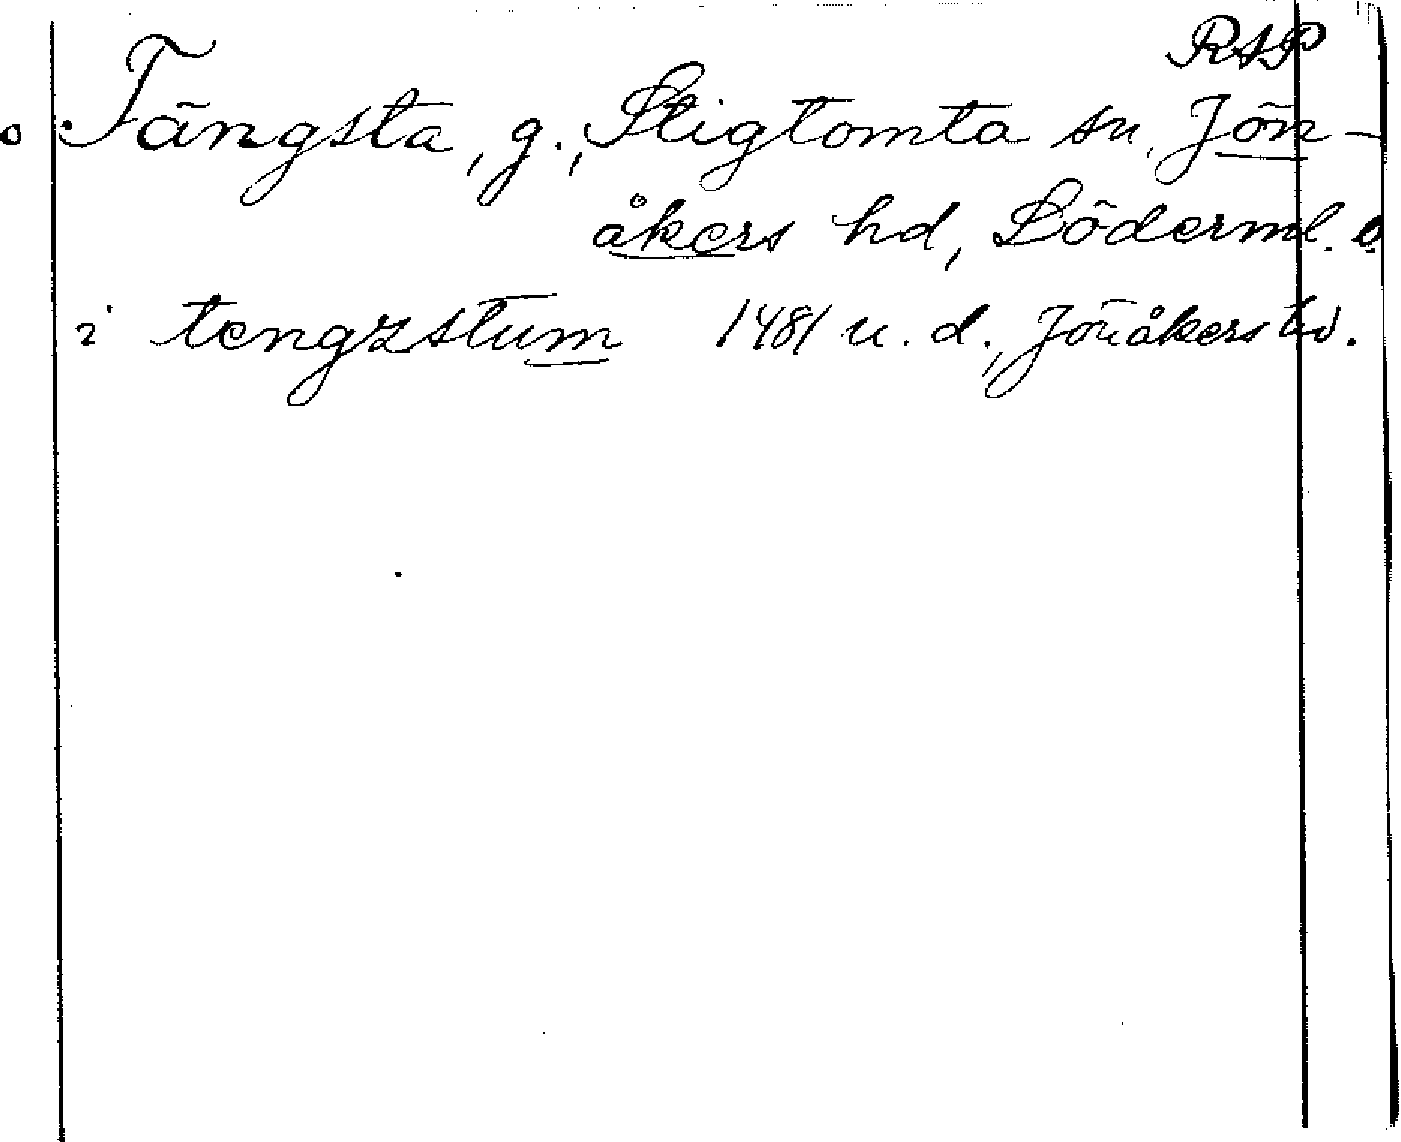 RAP
Tängsta, g., Stigtomta sn, Jön-
åkers hd, Söderml.
i tengzstum 1481 u. d., Jönåkers hd.